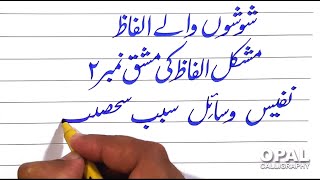 شوشوں والے الفاظ
مشکل الفاظ کی مشق نمبر ۲
نفیس وسائل سبب
OPAL
CALLIGRAPHY